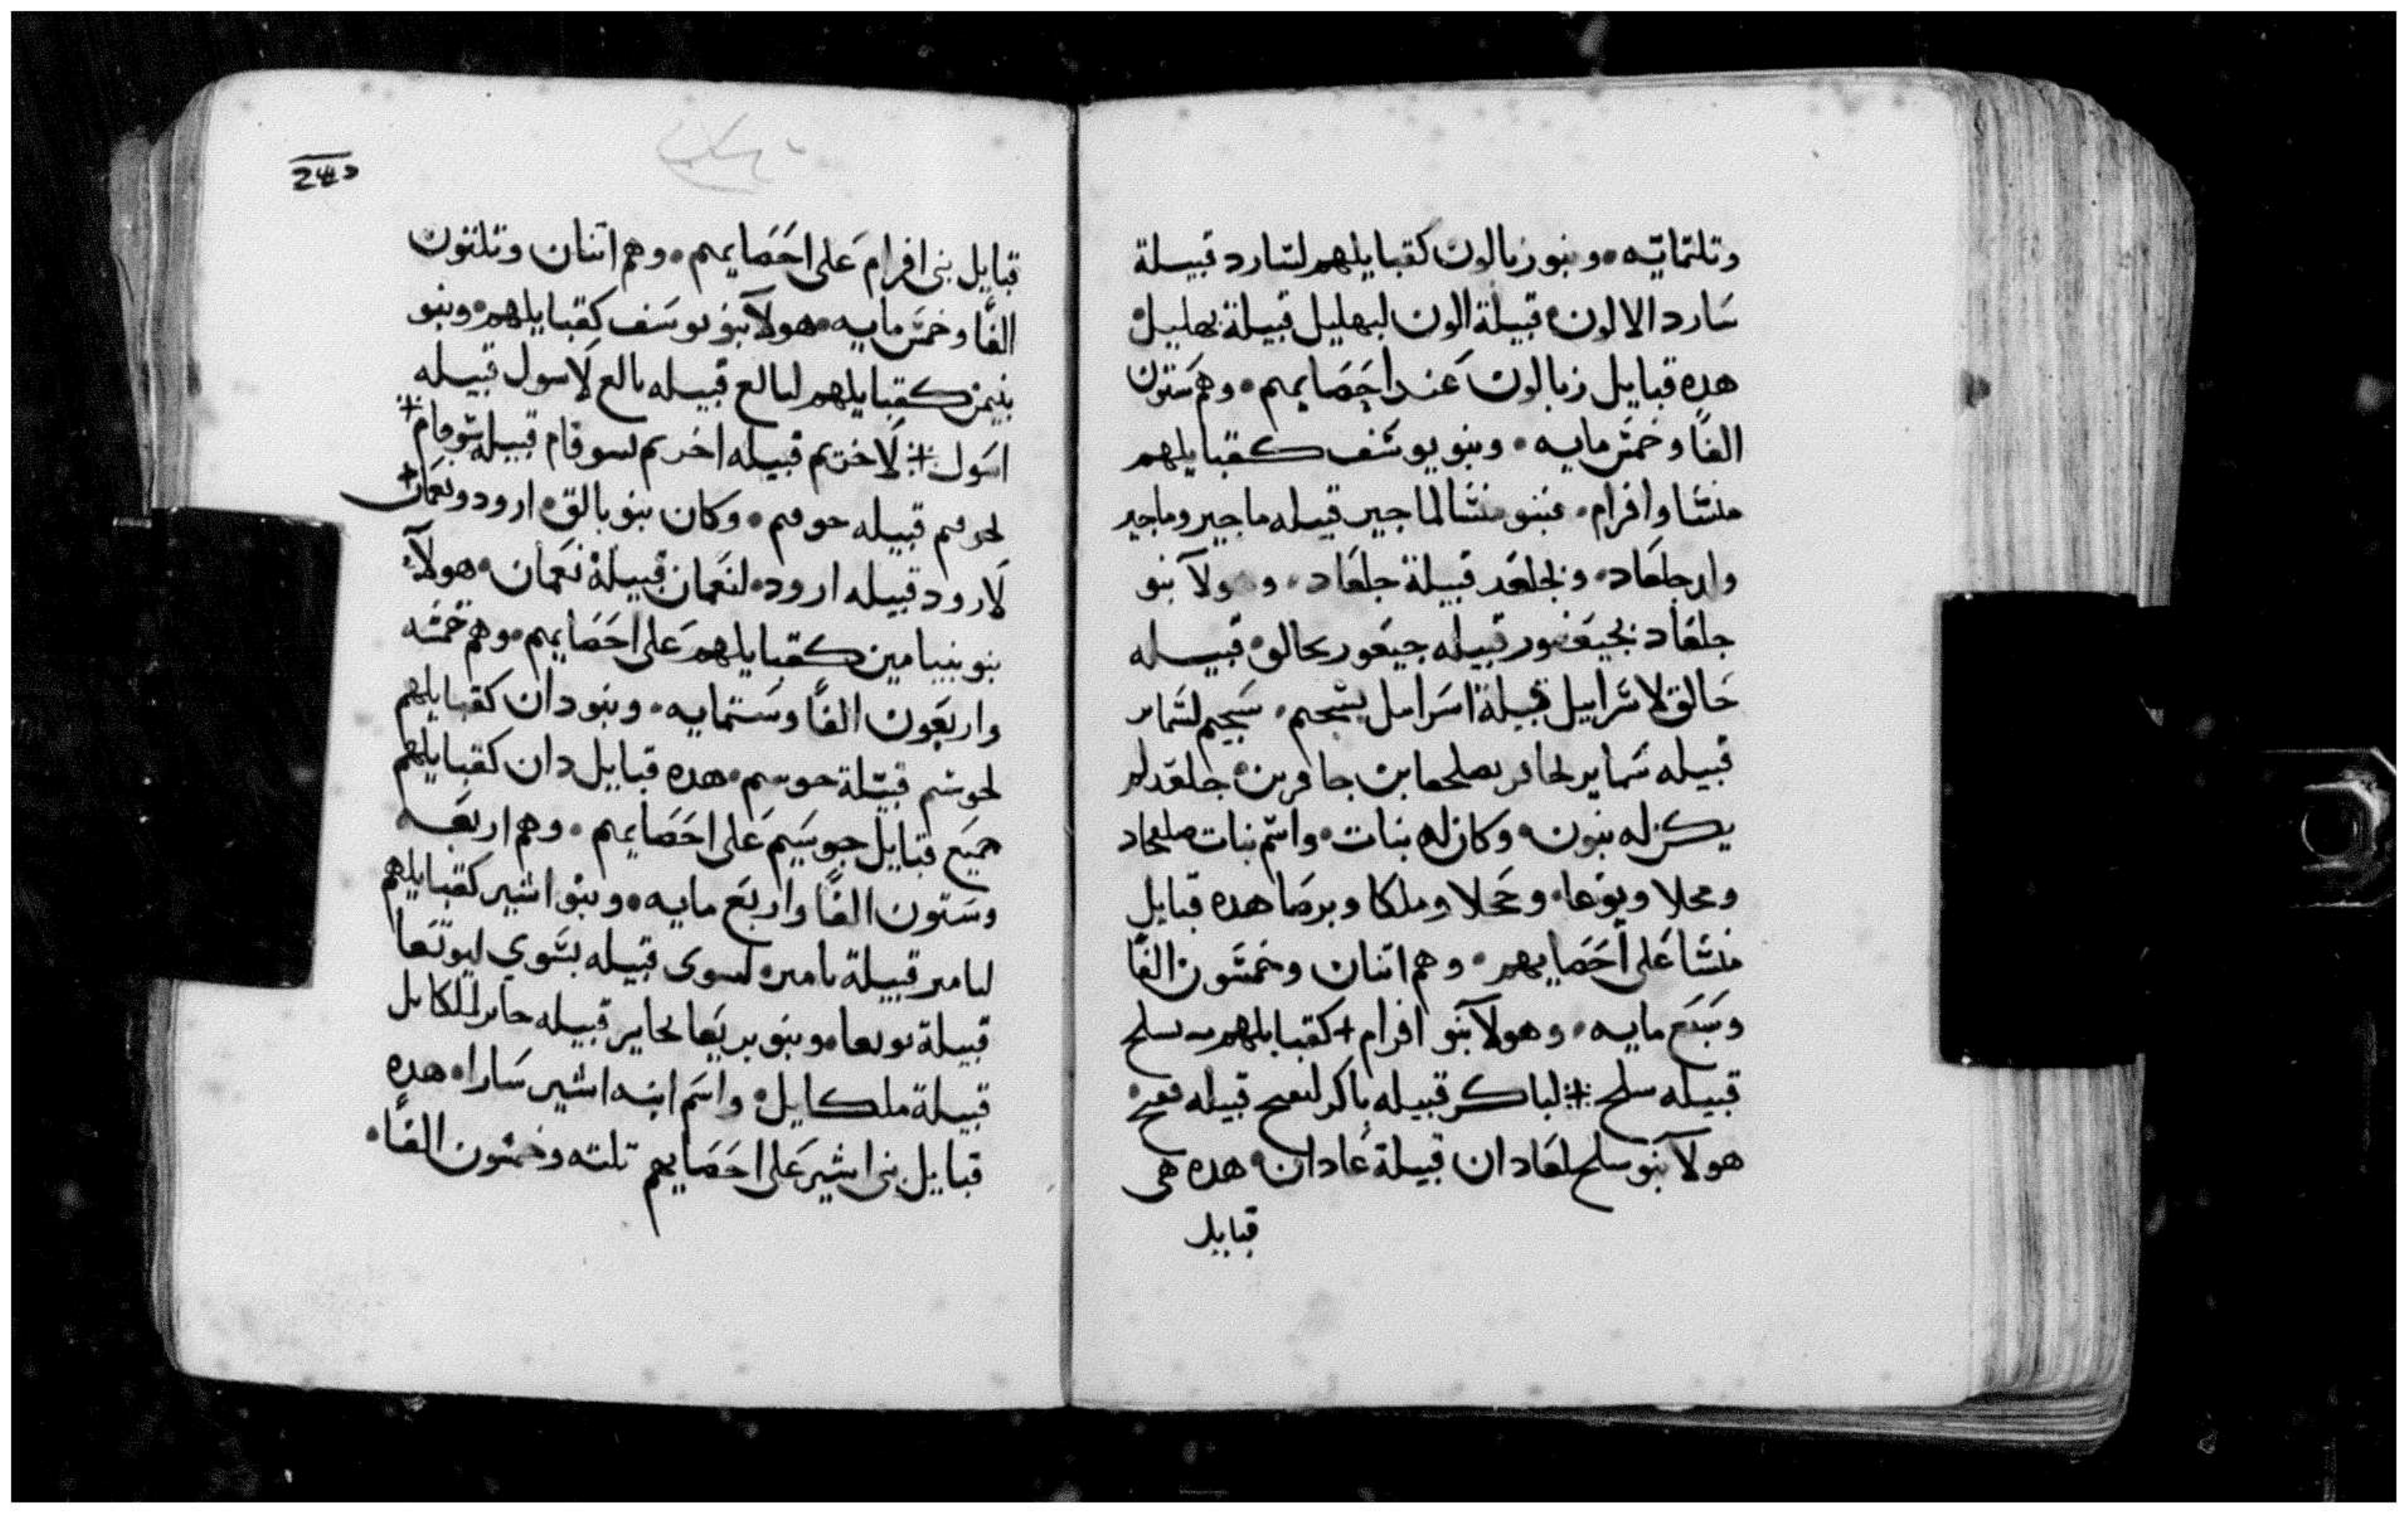 وتلتمايه • وبنو زبالون كقبايلهم لسارد قبيلة
سارد الالون • قبيلة الون لبهليل قبيلة بهليل •
هده قبايل زبالون عند احصايهم • وهم ستون
الفًا وخمس مايه • وبنو يوسف كقبايلهم
منسا وافرام • فبنو منسا لماجير قبيله ماجير وماجير
ولد جلعاد • ولجلعد قبيلة جلعاد • وهولآ بنو
جلعاد لجيعزور قبيله جيعزور لحالق • قبيله
حالق لاسراييل قبيلة اسراييل لسجيم • سجيم لسماير
قبيله سماير لحافر لصلحعا بن حافر بن جلعد لم
يكن له بنون • وكان له بنات • واسم بنات صلفحاد
ومحلا ونوعا • وحجلا وملكا وبرصا هده قبايل
منسا على احصايهم • وهم اتنان وخمسون الفًا
وسبع مايه • وهولآ بنو افرام + كقبايلهم لسلح
قبيله سلح لباكر قبيله باكر لنعح قبيله نعح •
هولآ بنو سلح لعادان قبيلة عادان • هده هى
قبايل
قبايل بنى افرام على احصايهم • وهم اتنان وتلتون
الفًا وخمس مايه • هولآ بنو يوسف كقبايلهم • وبنو
بنيمن كقبايلهم لبالع قبيله بالع لاسول قبيله
اسول لاخريم قبيله اخريم لسوفام قبيلة سوفام
لحوفيم قبيله حوفيم • وكان بنو بالق • ارود ونعمان
لارود قبيله ارود • لنعمان قبيلة نعمان • هولآ •
بنو بنيامين كقبايلهم على احصايهم • وهم خمسه
واربعون الفًا وستمايه • وبنو دان كقبايلهم
لحوسم قبيلة حوسم • هده قبايل دان كقبايلهم
جميع قبايل حوسيم على احصايهم • وهم اربعه
وستون الفًا واربع مايه • وبنو اشير كقبايلهم
ليامير قبيلة يامير • ليسوى قبيله يسوي ليوبعا
قبيلة يوبعا • وبنو بريعا لحابر قبيله حابر لملكايل
قبيلة ملكايل • واسم ابنه اشير سارا • هده
قبايل بنى اشير على احصايهم تلته وخمسون الفًا •